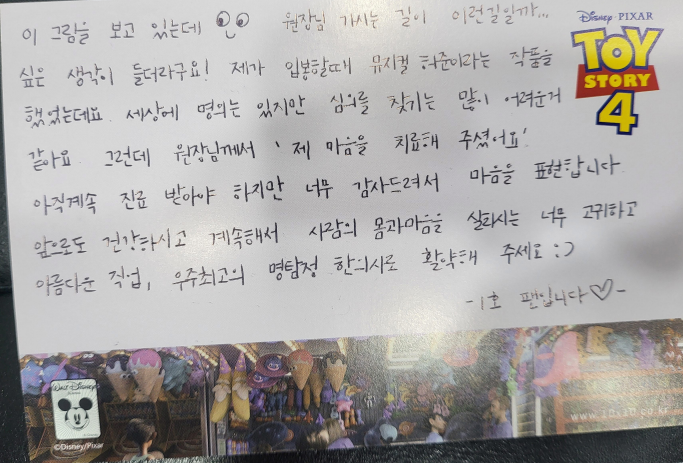 이 그림을 보고 있는데 원장님 가시는 길이 이런길일까...
싶은 생각이 들더라구요! 제가 입봉할때 뮤지컬 허준이라는 작품을
했었는데요. 세상에 명의는 있지만 심의를 찾기는 많이 어려운거
같아요. 그런데 원장님께서 '제 마음을 치료해 주셨어요'
아직계속 진료 받아야 하지만 너무 감사드려서 마음을 표현합니다
앞으로도 건강하시고 계속해서 사람의 몸과마음을 살피시는 너무 고귀하고
아름다운 직업, 우주최고의 명탐정 한의사로 활약해 주세요 :)
-1호 팬입니다♡-
Disney·PIXAR
TOY
STORY
4
WALT DISNEY
©Disney/Pixar
www.10x10.co.kr